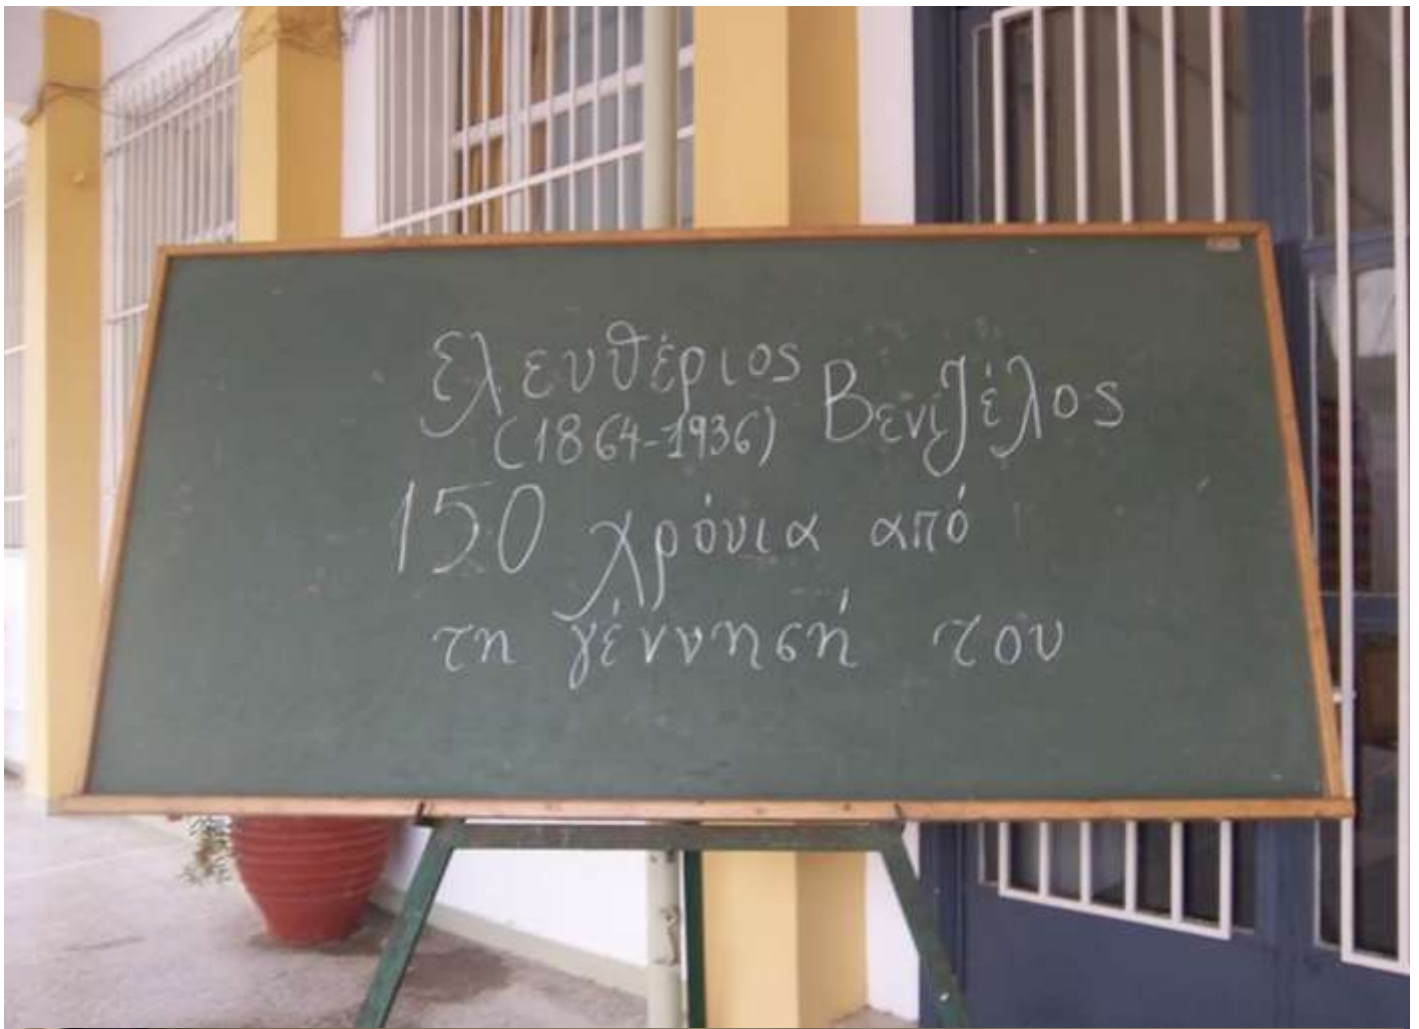 Ελευθέριος Βενιζέλος
(1864-1936)
150 χρόνια από
τη γέννησή του